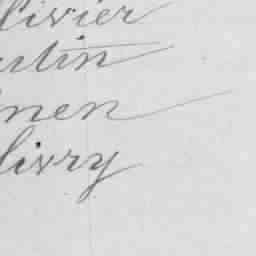 livier
stin
men
livry